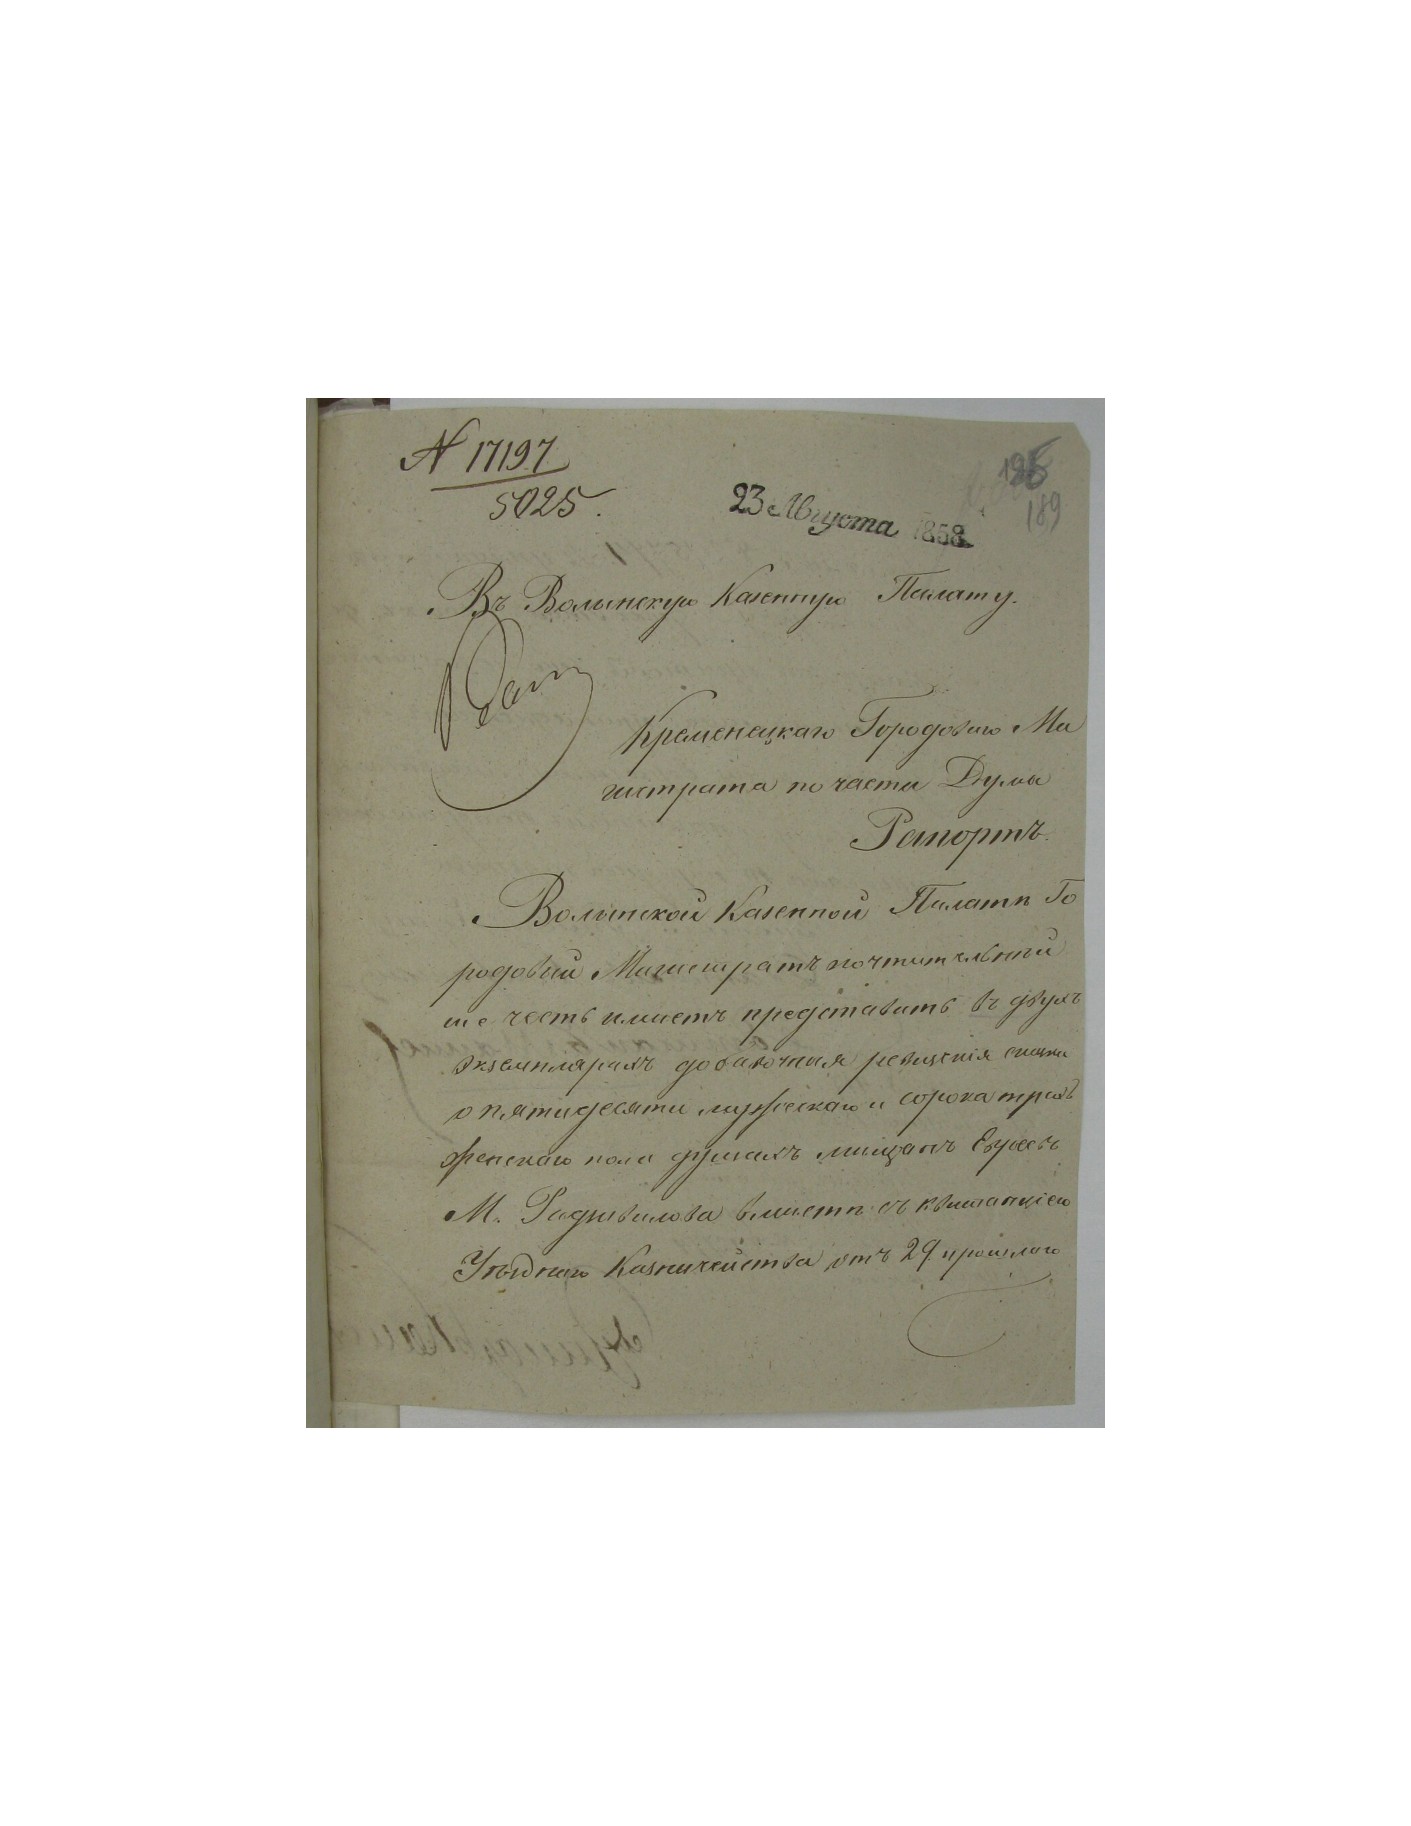 N 17197
5025.
23 Августа 1858
185
189
Въ Волынскую Казенную Палату.
Кременецкаго Городоваго Ма
гистрата по части Думы
Рапортъ.
Волынской Казенной Палатѣ Го
родовый Магистратъ почтительнѣй
ше честь имѣетъ представить въ двухъ
экземплярахъ добавочныя ревизскія сказки
о пятидесяти мужескаго и сорока трехъ
женскаго пола душахъ мѣщанъ Евреевъ
М. Радзивилова вмѣстѣ съ квитанціею
Уѣзднаго Казначейства отъ 29 прошлаго